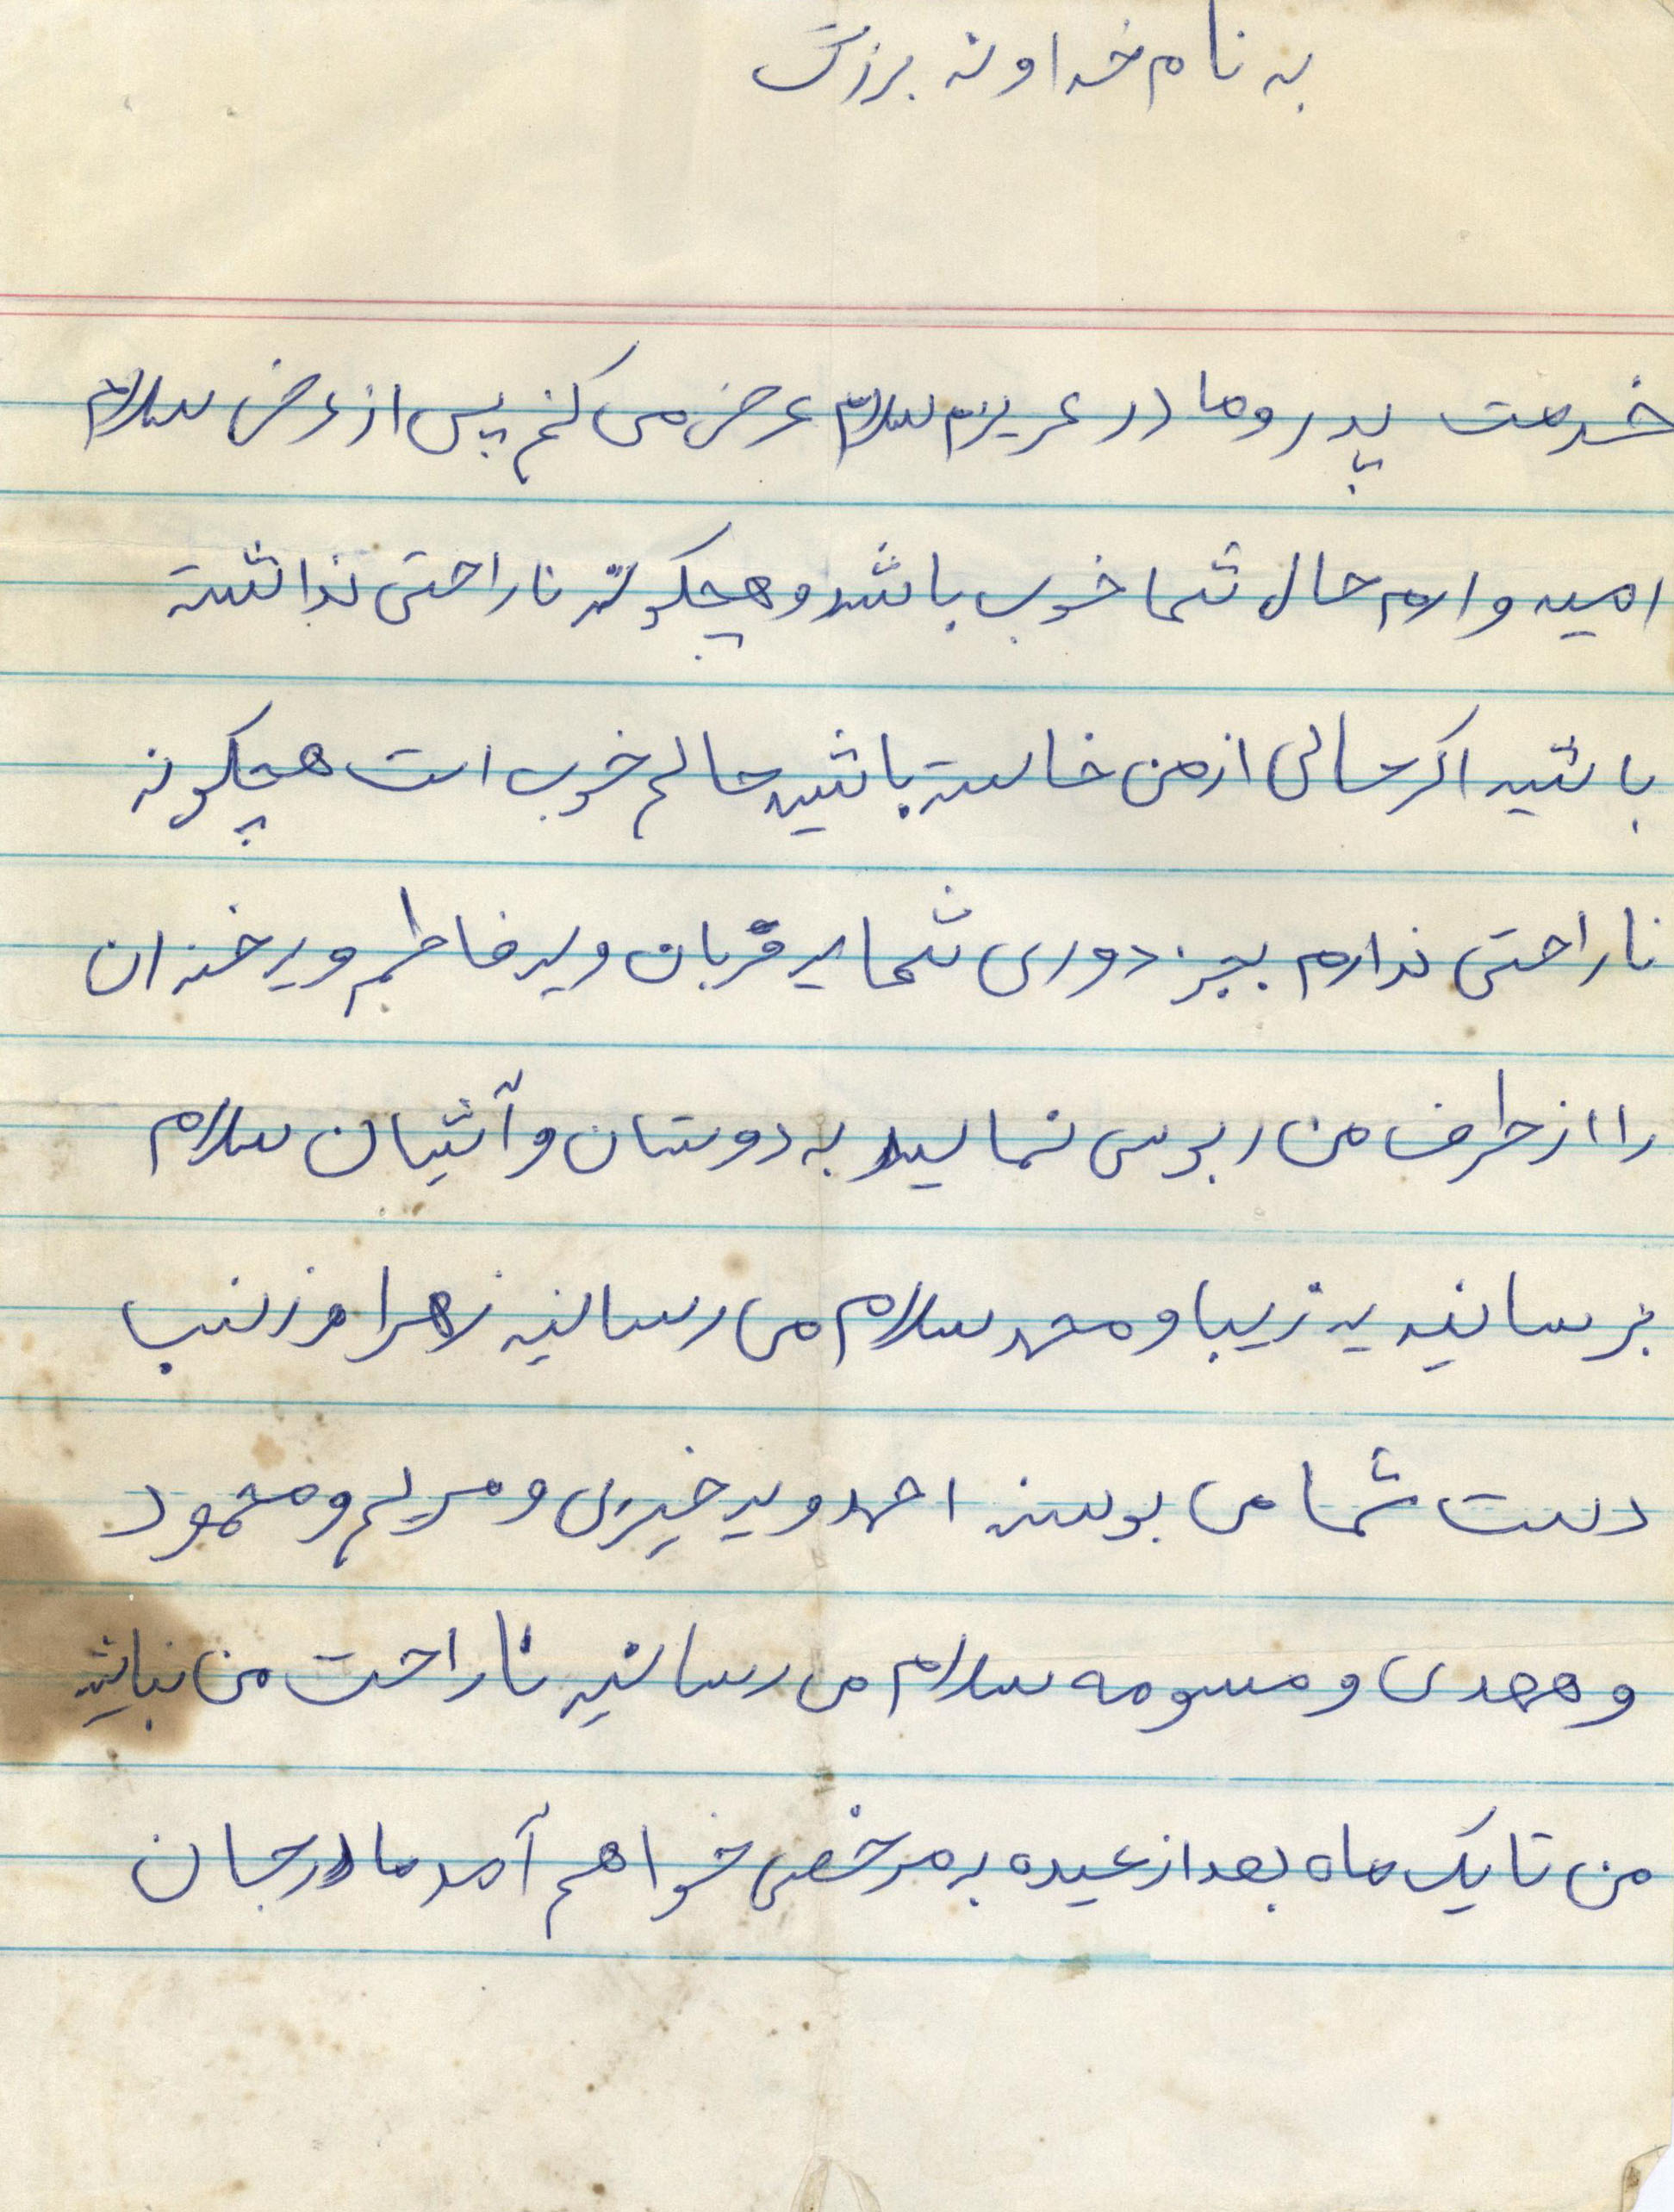 به نام خداوند بزرگ
خدمت پدر و مادر عزیزم سلام عرض می کنم پس از عرض سلام
امیدوارم حال شما خوب باشد و هیچگونه ناراحتی نداشته
باشید اگر حالی از من خاسته باشید حالم خوب است هیچگونه
ناراحتی ندارم بجز دوری شما قربان و فاطم و
را از طرف من بوسی نمایید به دوستان و آشیان سلام
برسانید به زیبا و محمد سلام می رسانید زهرا و زینب
دست شما می بوسند احمد و و مریم و محمود
و مهدی و مسومه سلام می رسانید ناراحت من نباشید
من تا یک ماه بعد از عیده به مرخصی خواهم آمد مادر جان